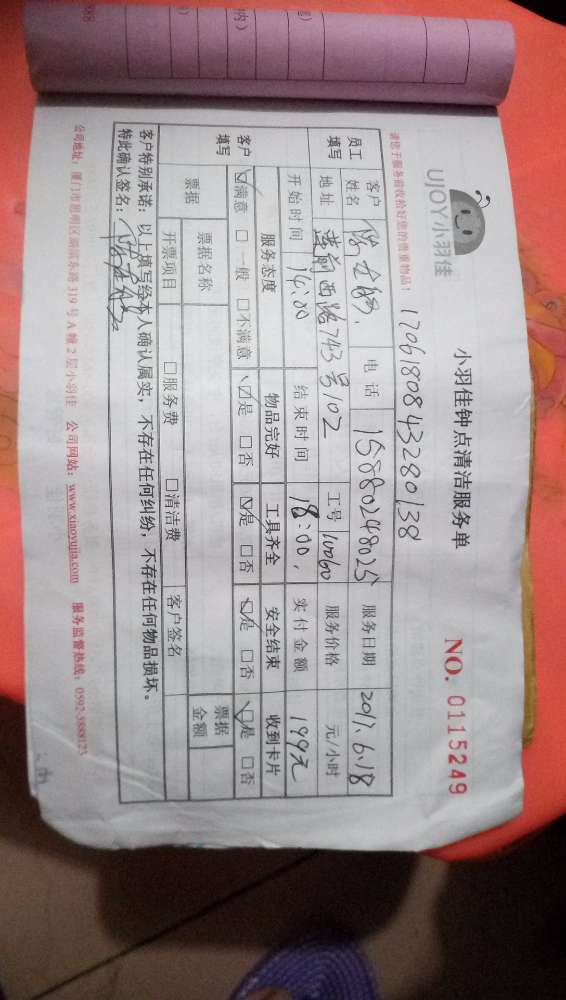 UJOY小羽佳
小羽佳钟点清洁服务单
NO. 0115249
请您于服务前收拾好您的贵重物品!
1706180843280138
员工填写
客户姓名
电话 15880248025
服务日期 2017.6.18
地址 莲前西路743号102
工号
服务价格 元/小时
开始时间 14:00
结束时间 18:00
实付金额 199元
客户填写
服务态度 物品完好 工具齐全 安全结束 收到卡片
☑满意 □一般 □不满意 ☑是 □否 ☑是 □否 ☑是 □否 ☑是 □否
票据
票据名称
票据金额
开票项目 □服务费 □清洁费 客户签名
客户特别承诺:以上填写经本人确认属实,不存在任何纠纷,不存在任何物品损坏。
特此确认签名:
公司地址:厦门市思明区湖滨东路319号A幢2层小羽佳 公司网站:www.xiaoyujia.com 服务监督热线:0592-5888123